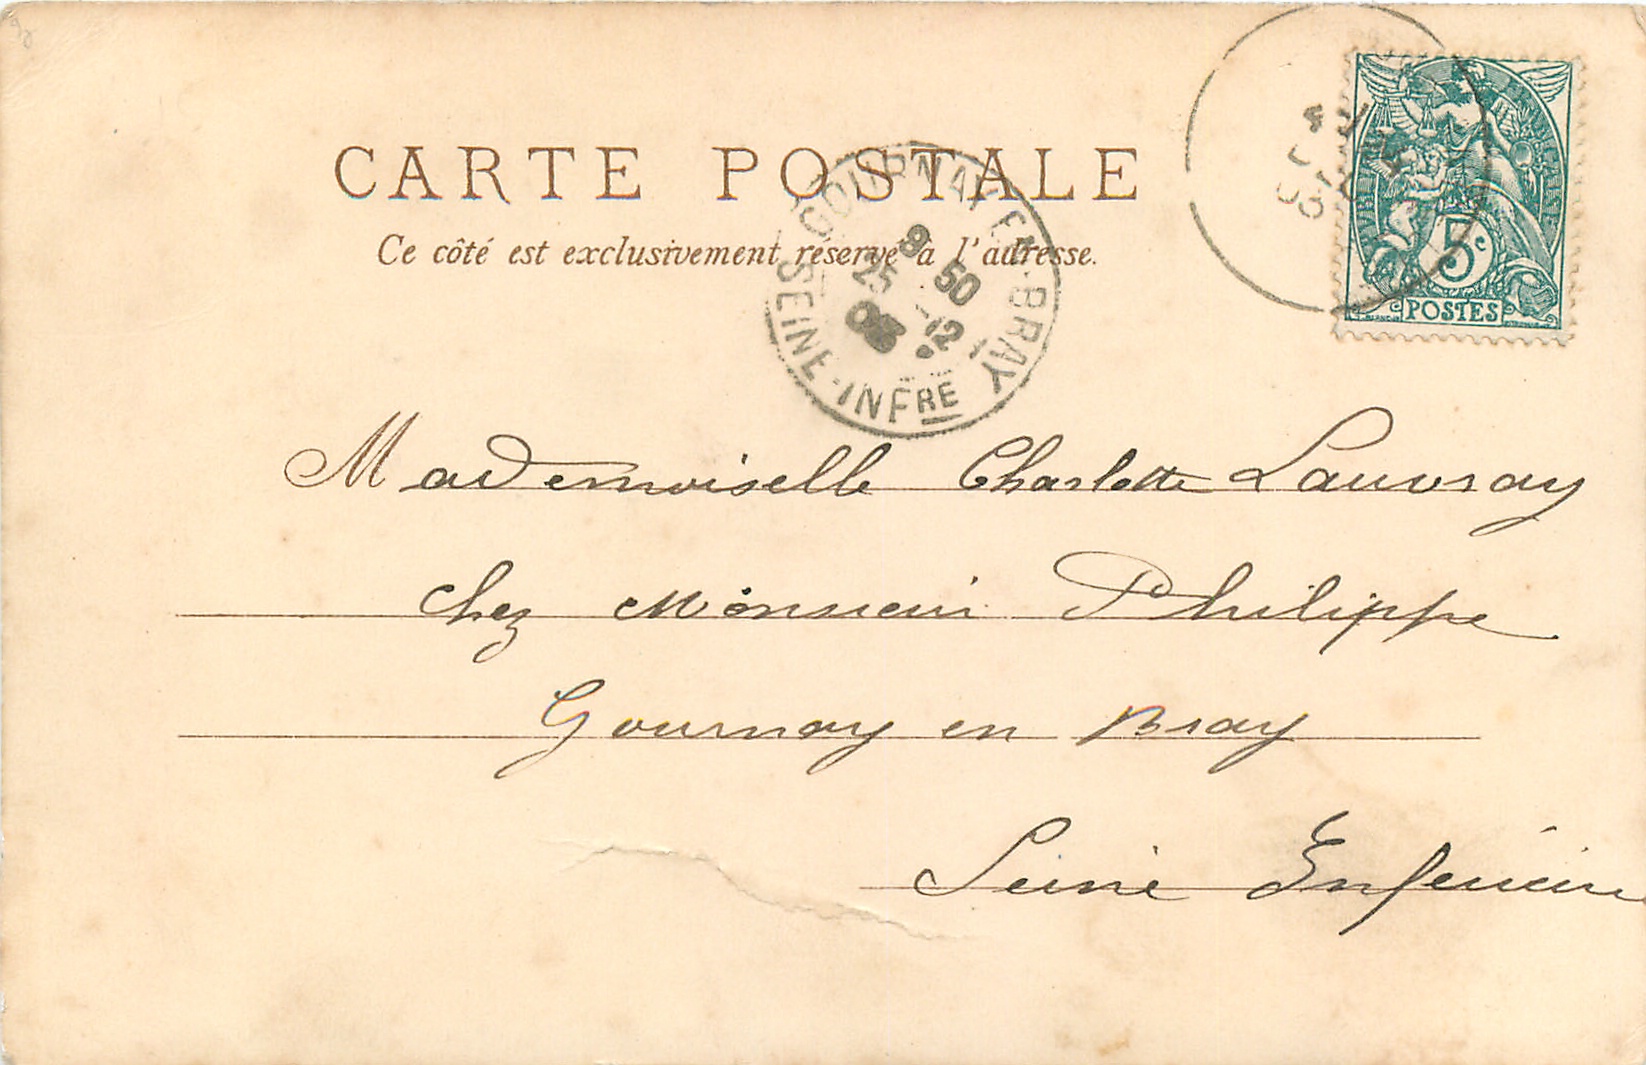 CARTE POSTALE
Ce côté est exclusivement réservé à l'adresse.
GOURNAY-EN-BRAY
9 50
25 -12
03
SEINE-INFRE
5c
POSTES
Mademoiselle Charlotte Lauvray
chez Monsieur Philippe
Gournay en Bray
Seine Enférieure